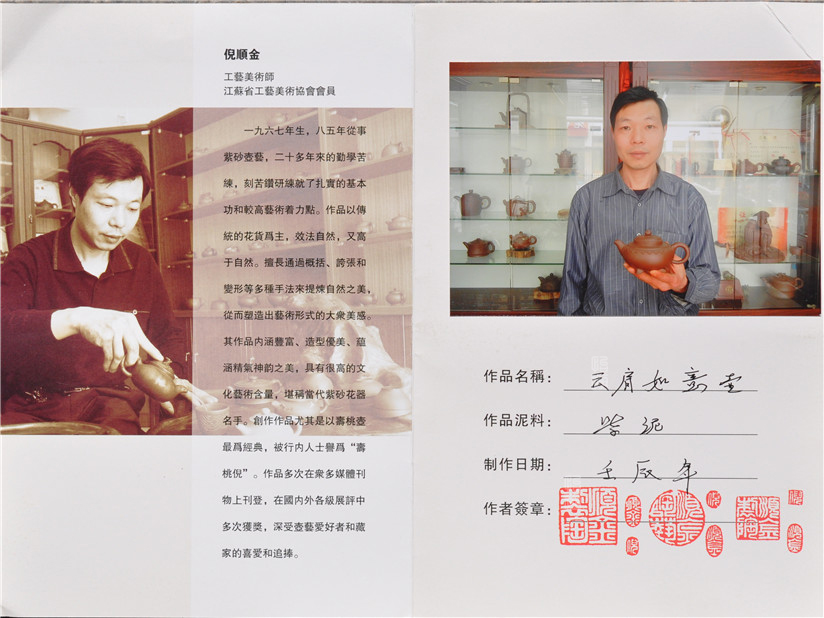 倪順金
工藝美術師
江蘇省工藝美術協會會員
一九六七年生，八五年從事
紫砂壺藝，二十多年來的勤學苦
練，刻苦鑽研練就了扎實的基本
功和較高藝術着力點。作品以傳
統的花貨爲主，效法自然，又高
于自然。擅長通過概括、誇張和
變形等多種手法來提煉自然之美，
從而塑造出藝術形式的大衆美感。
其作品内涵豐富、造型優美、藴
涵精氣神韵之美，具有很高的文
化藝術含量，堪稱當代紫砂花器
名手。創作作品尤其是以壽桃壺
最爲經典，被行内人士譽爲“壽
桃倪”。作品多次在衆多媒體刊
物上刊登，在國内外各級展評中
多次獲獎，深受壺藝愛好者和藏
家的喜愛和追捧。
作品名稱：云肩如意壶
作品泥料：紫泥
制作日期：壬辰年
作者簽章：